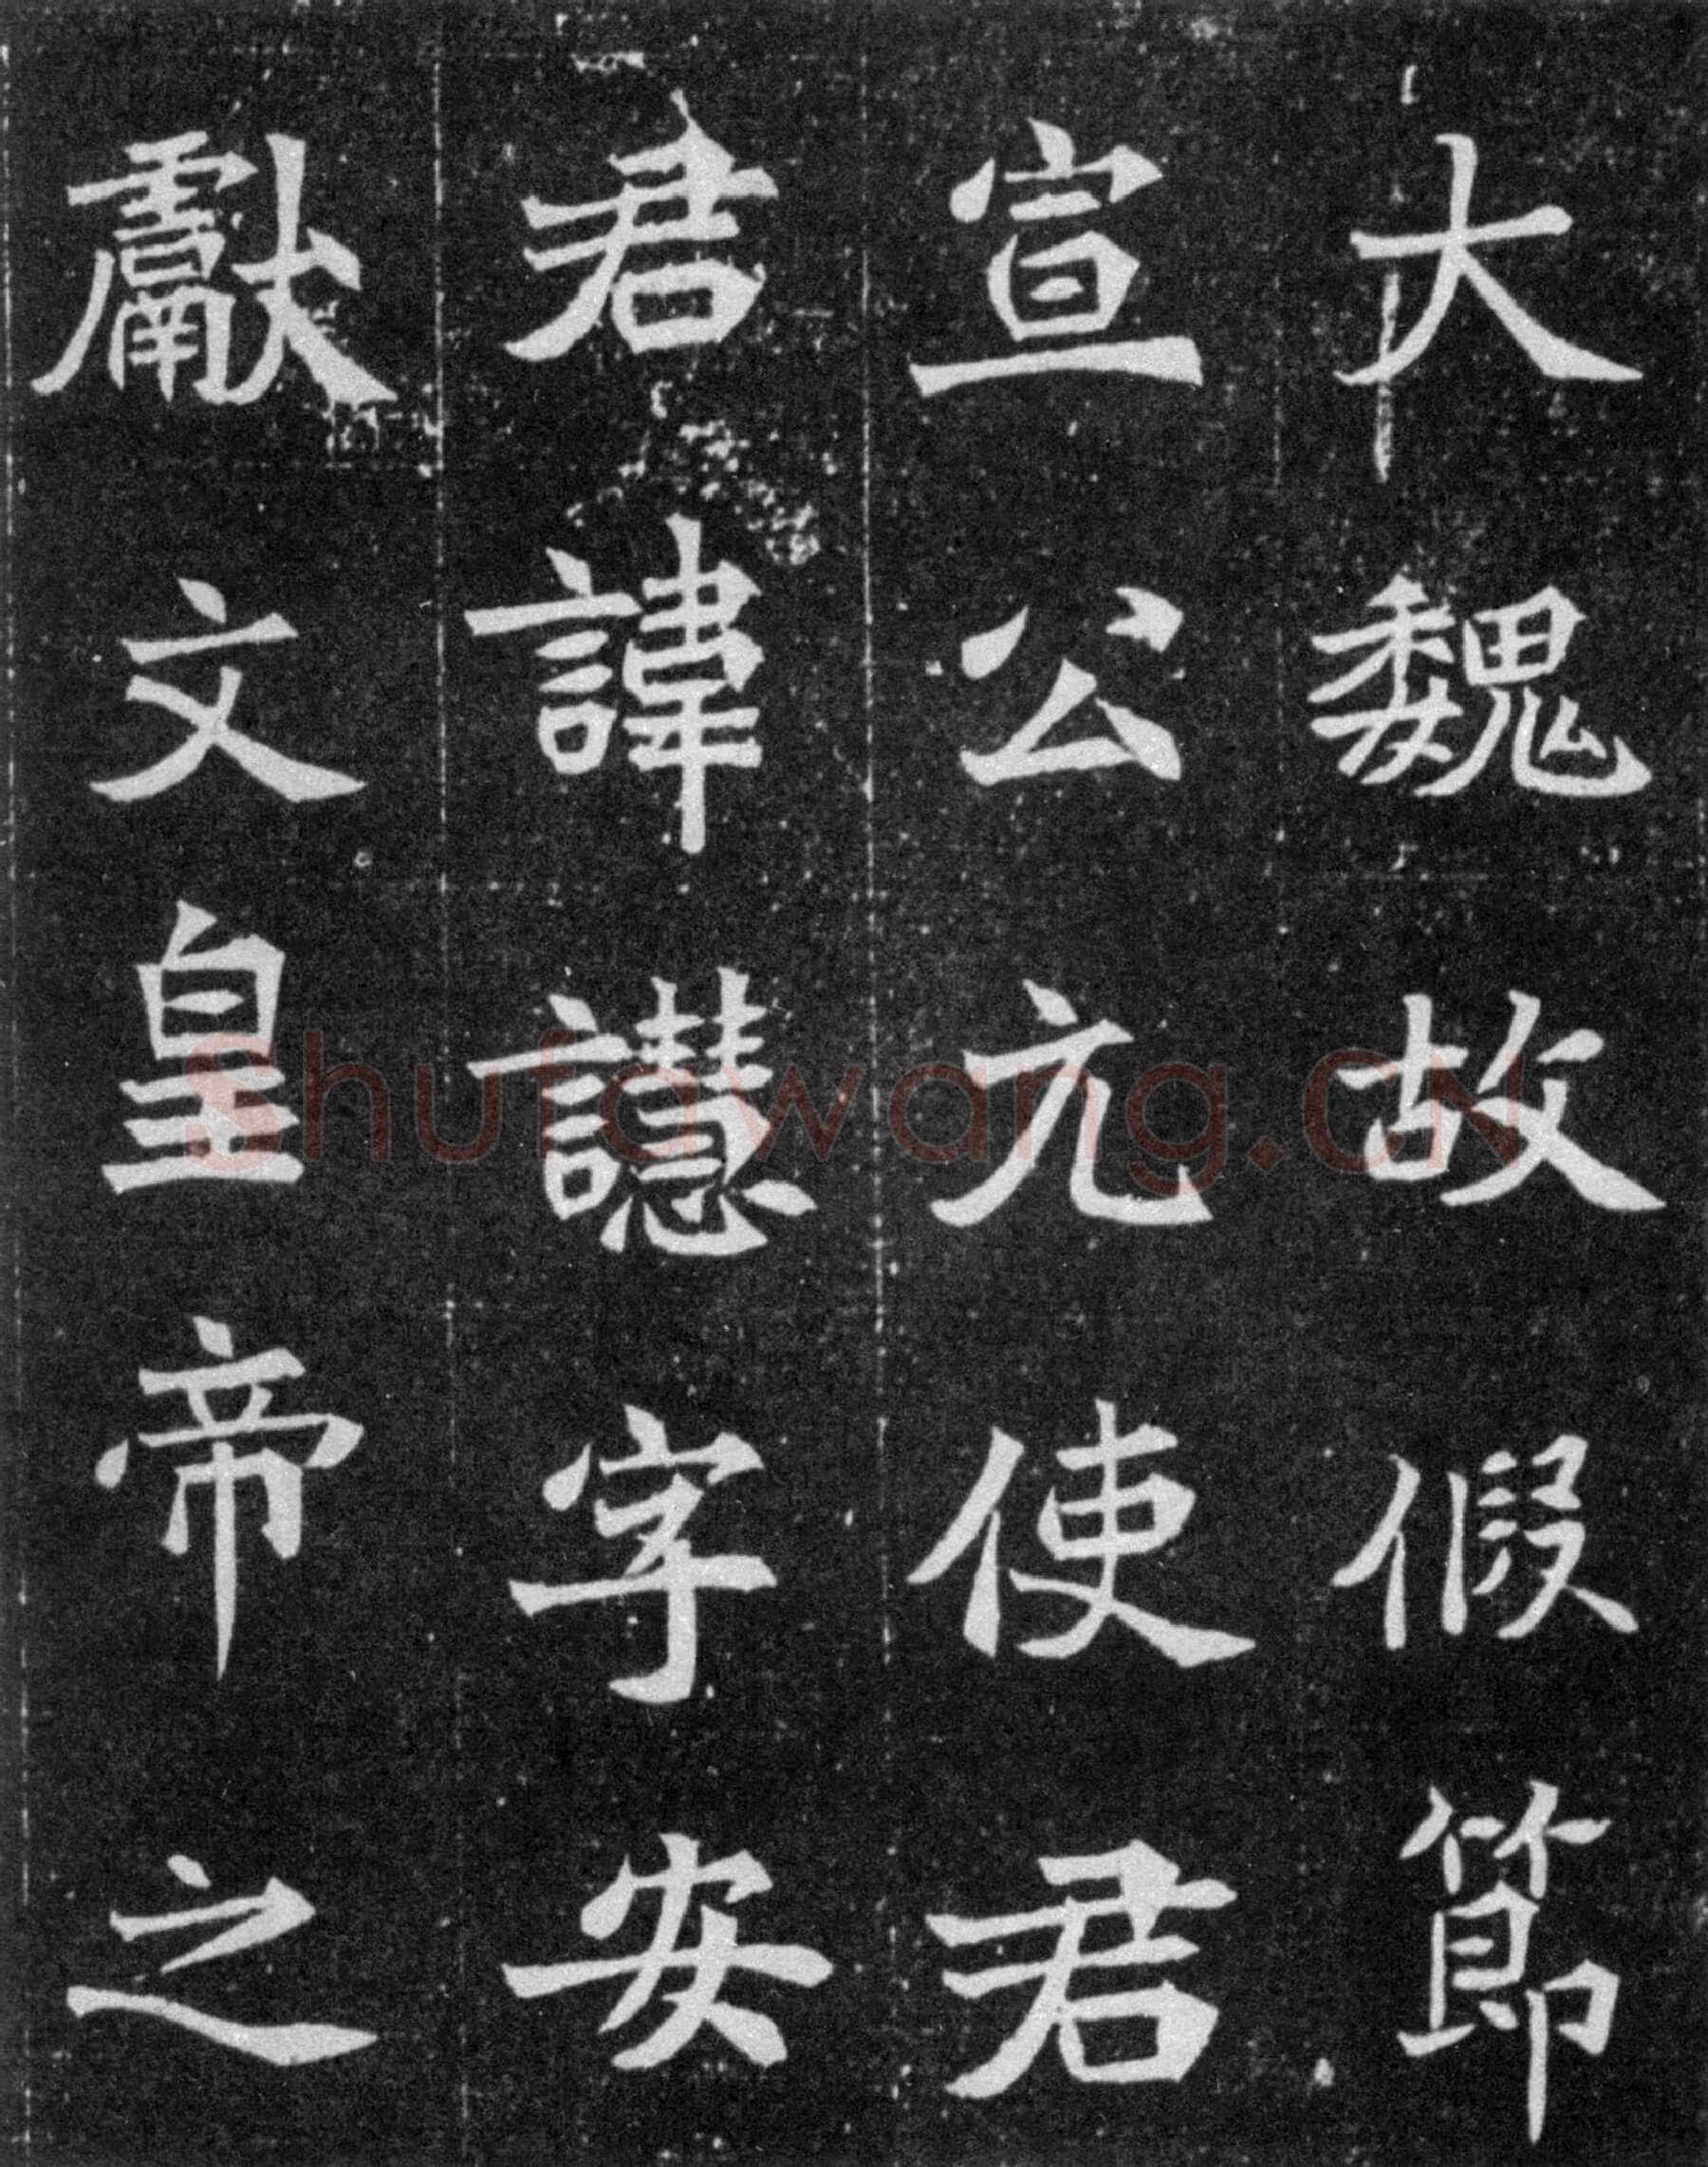 大魏故假節
宣公元使君
君諱譿字安
獻文皇帝之
Shufawang.CN